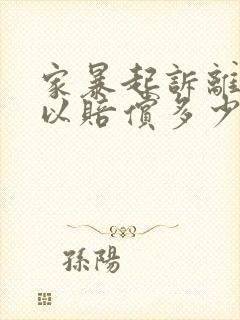 家暴起訴離
以賠償多少
孫陽